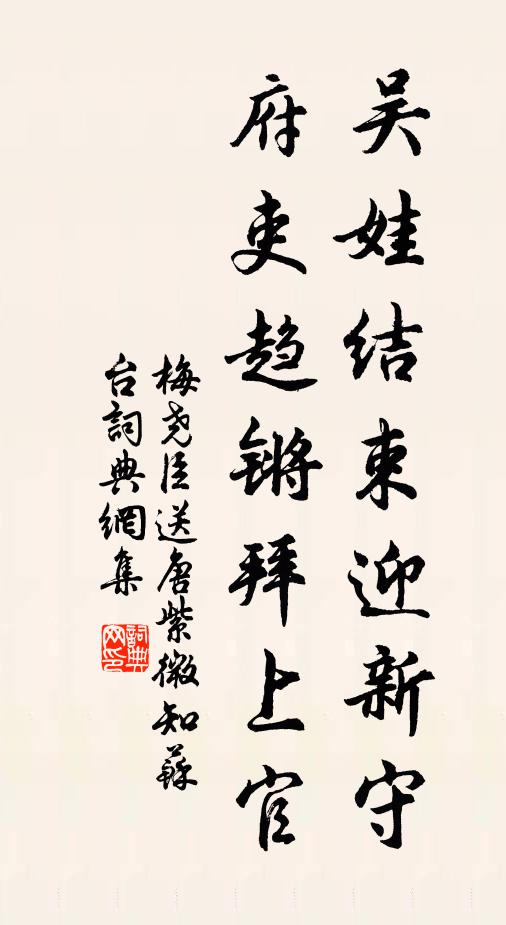 吴娃结束迎新守
府吏趋锵拜上官
梅尧臣送唐紫微知蘇
台詞典網集
詞典网印